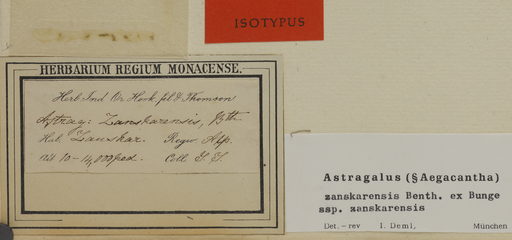 ISOTYPUS
HERBARIUM REGIUM MONACENSE.
Herb. Ind. Or. Hook. fil. & Thomson
Astrag: Zanskarensis, Bth.
Hab. Zanskar. Regio Alp.
alt 10-14,000 ped. Coll. T. T.
Astragalus (§ Aegacantha)
zanskarensis Benth. ex Bunge
ssp. zanskarensis
Det. – rev I. Deml, München